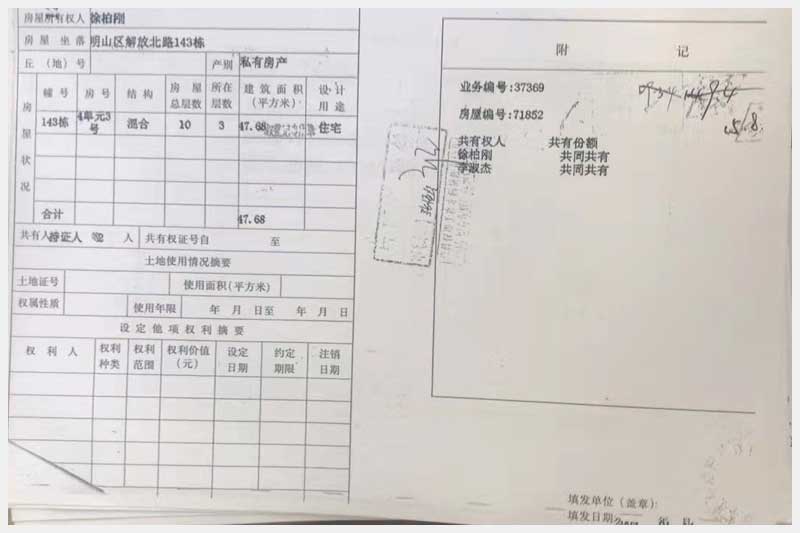 房屋所有权人 徐柏刚
房屋坐落 明山区解放北路143栋
丘（地）号 产别 私有房产
房屋状况
幢号 房号 结构 房屋总层数 所在层数 建筑面积（平方米） 设计用途
143栋 4单元3号 混合 10 3 47.68 住宅
合计 47.68
共有人 持证人 人 共有权证号自 至
土地使用情况摘要
土地证号 使用面积（平方米）
权属性质 使用年限 年 月 日至 年 月 日
设定他项权利摘要
权利人 权利种类 权利范围 权利价值（元） 设定日期 约定期限 注销日期
附 记
业务编号:37369
房屋编号:71852
共有权人 共有份额
徐柏刚 共同共有
李淑杰 共同共有
填发单位（盖章）:
填发日期